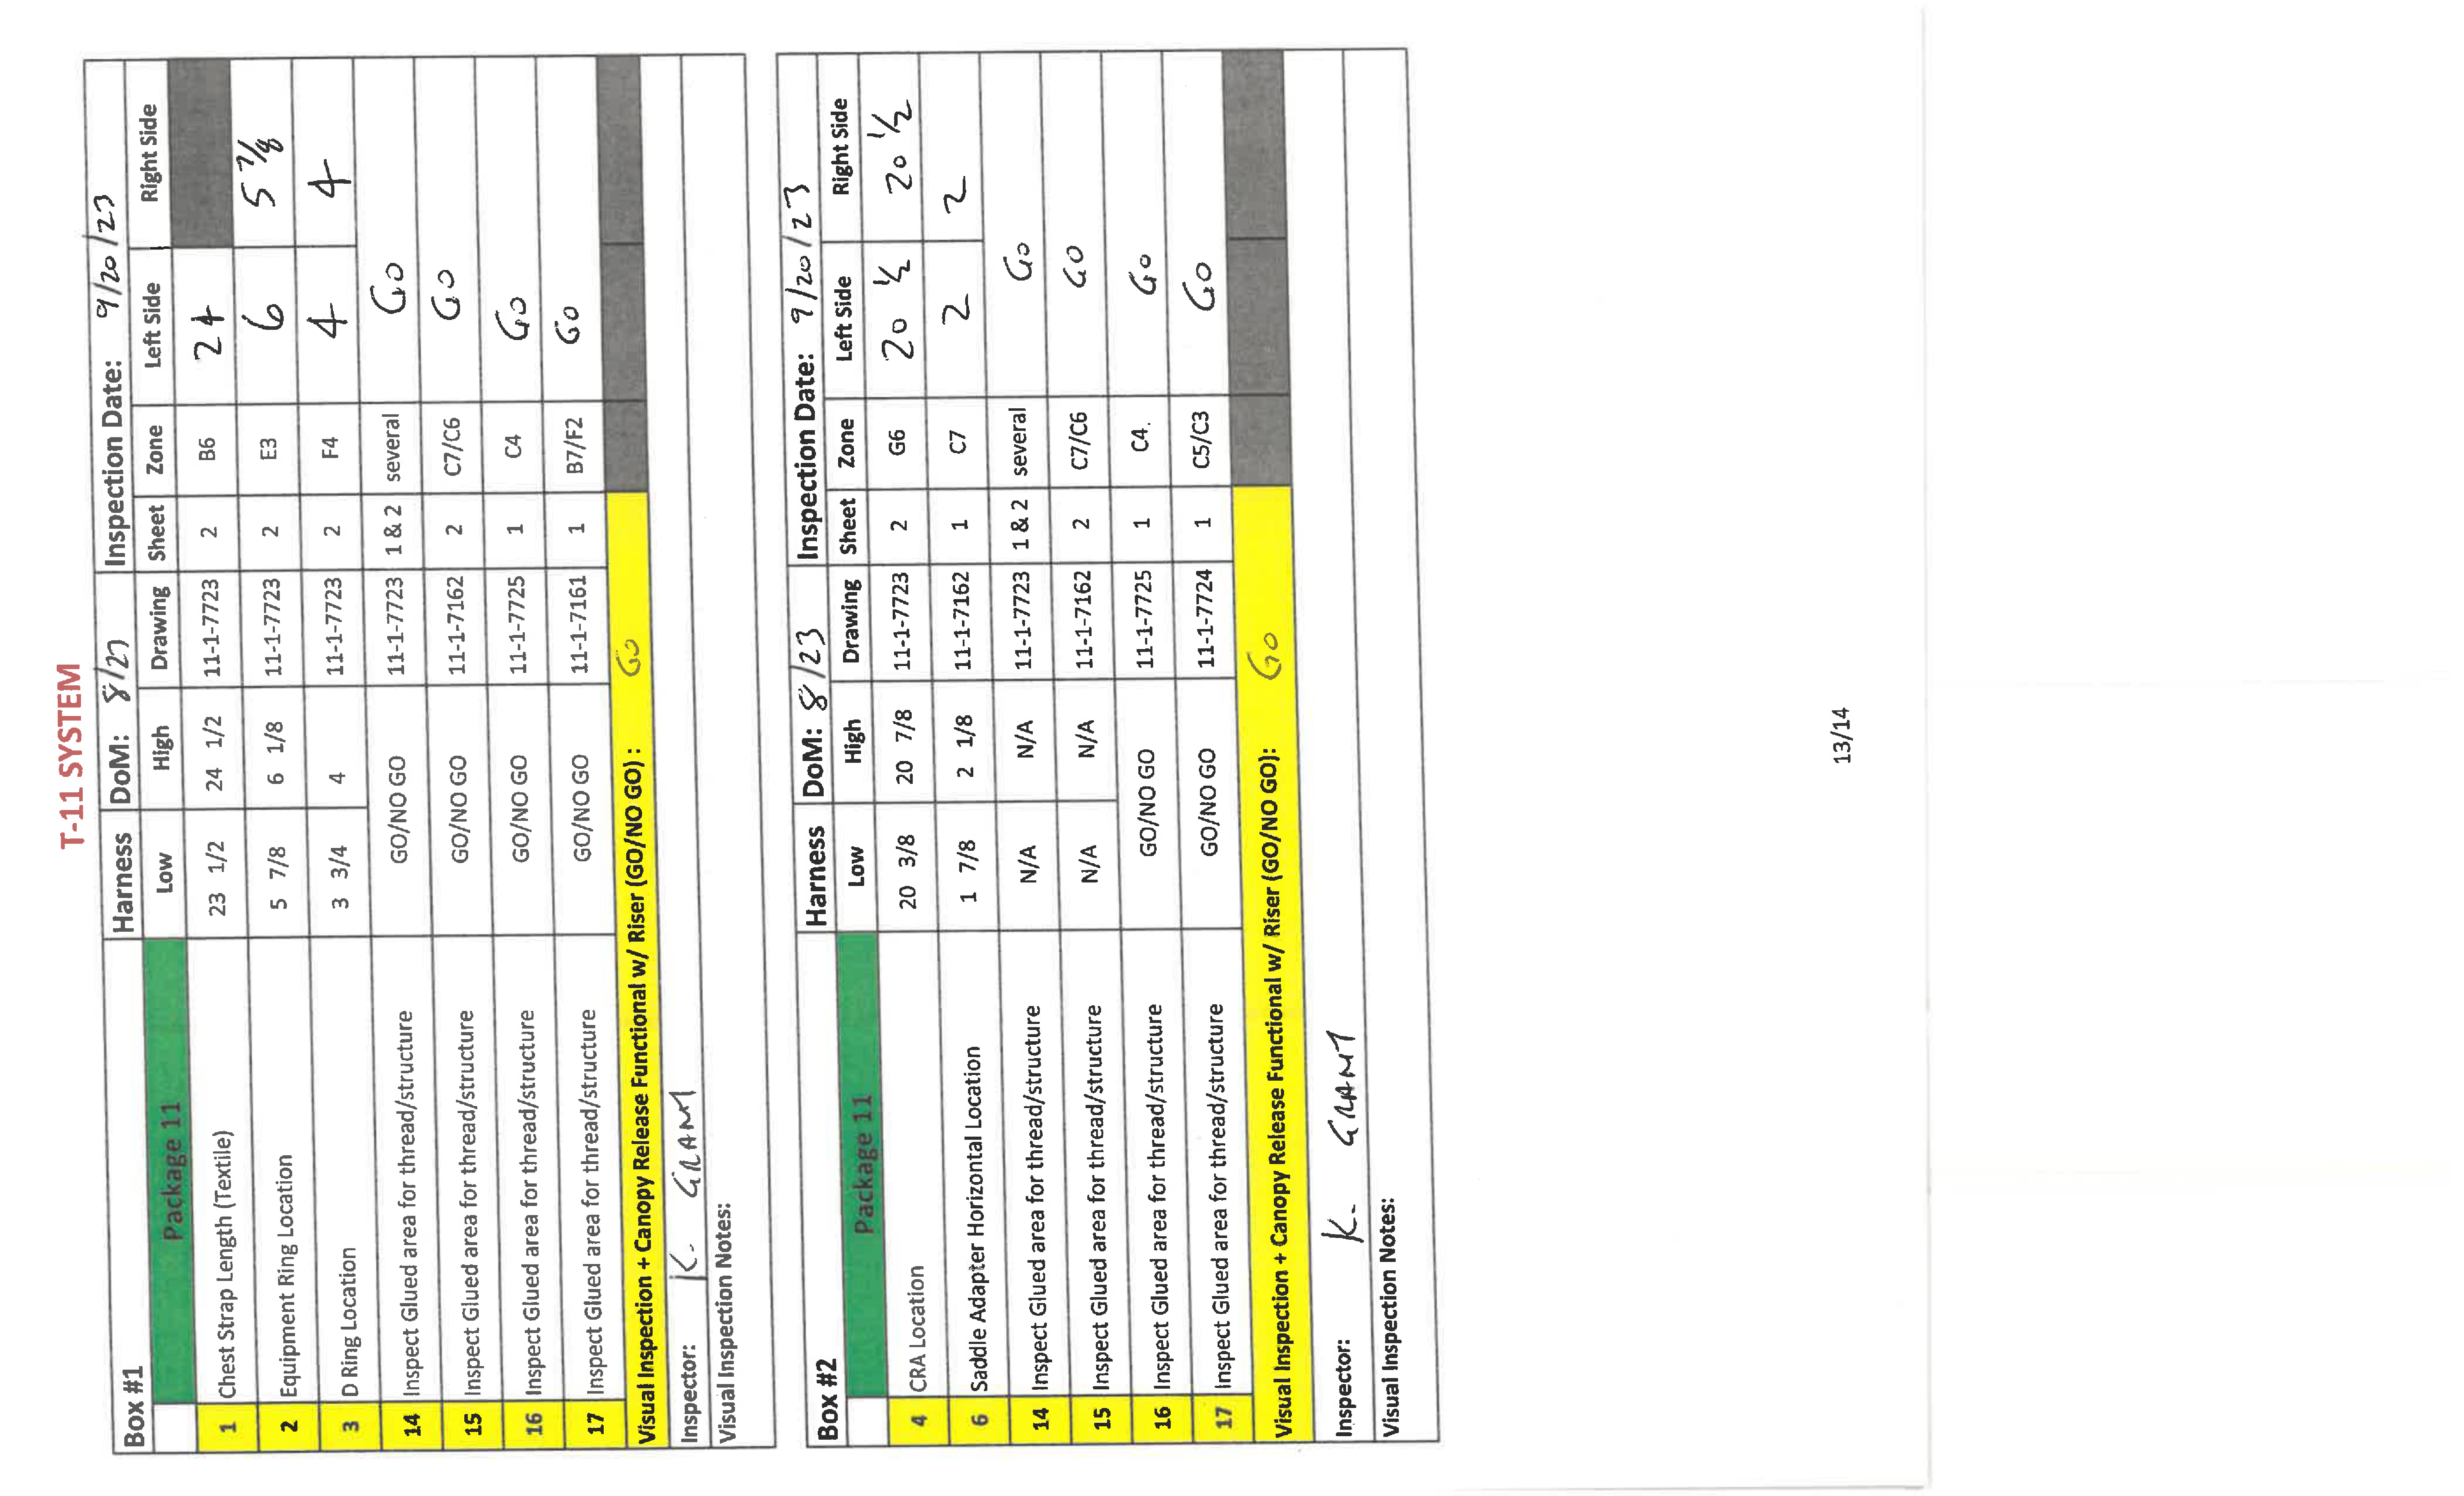 T-11 SYSTEM
Box #1 Harness DoM: 8/23 Inspection Date: 9/20/23
Package 11 Low High Drawing Sheet Zone Left Side Right Side
1 Chest Strap Length (Textile) 23 1/2 24 1/2 11-1-7723 2 B6 24
2 Equipment Ring Location 5 7/8 6 1/8 11-1-7723 2 E3 6 5 7/8
3 D Ring Location 3 3/4 4 11-1-7723 2 F4 4 4
14 Inspect Glued area for thread/structure GO/NO GO 11-1-7723 1 & 2 several Go
15 Inspect Glued area for thread/structure GO/NO GO 11-1-7162 2 C7/C6 GO
16 Inspect Glued area for thread/structure GO/NO GO 11-1-7725 1 C4 Go
17 Inspect Glued area for thread/structure GO/NO GO 11-1-7161 1 B7/F2 GO
Visual Inspection + Canopy Release Functional w/ Riser (GO/NO GO) : GO
Inspector: K. GRANT
Visual Inspection Notes:
Box #2 Harness DoM: 8/23 Inspection Date: 9/20/23
Package 11 Low High Drawing Sheet Zone Left Side Right Side
4 CRA Location 20 3/8 20 7/8 11-1-7723 2 G6 20 1/2 20 1/2
6 Saddle Adapter Horizontal Location 1 7/8 2 1/8 11-1-7162 1 C7 2 2
14 Inspect Glued area for thread/structure N/A N/A 11-1-7723 1 & 2 several Go
15 Inspect Glued area for thread/structure N/A N/A 11-1-7162 2 C7/C6 GO
16 Inspect Glued area for thread/structure GO/NO GO 11-1-7725 1 C4. Go
17 Inspect Glued area for thread/structure GO/NO GO 11-1-7724 1 C5/C3 Go
Visual Inspection + Canopy Release Functional w/ Riser (GO/NO GO): Go
Inspector: K. GRANT
Visual Inspection Notes:
13/14